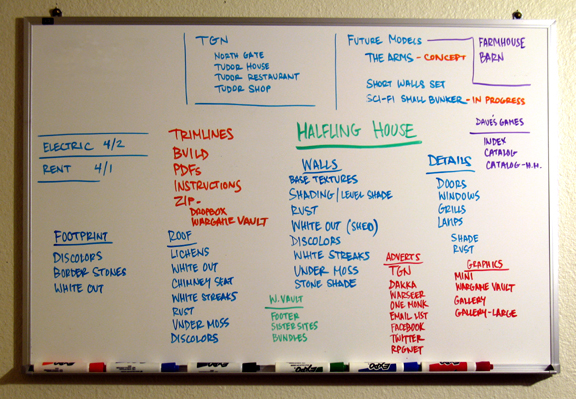 TGN
NORTH GATE
TUDOR HOUSE
TUDOR RESTAURANT
TUDOR SHOP
FUTURE MODELS
THE ARMS - CONCEPT
SHORT WALLS SET
SCI-FI SMALL BUNKER - IN PROGRESS
FARMHOUSE
BARN
DAVE'S GAMES
INDEX
CATALOG
CATALOG-H.M.
ELECTRIC 4/2
RENT 4/1
HALFLING HOUSE
TRIMLINES
BUILD
PDFS
INSTRUCTIONS
ZIP-
DROPBOX
WARGAME VAULT
FOOTPRINT
DISCOLORS
BORDER STONES
WHITE OUT
ROOF
LICHENS
WHITE OUT
CHIMNEY SEAT
WHITE STREAKS
RUST
UNDER MOSS
DISCOLORS
WALLS
BASE TEXTURES
SHADING/LEVEL SHADE
RUST
WHITE OUT (SHED)
DISCOLORS
WHITE STREAKS
UNDER MOSS
STONE SHADE
W. VAULT
FOOTER
SISTER SITES
BUNDLES
DETAILS
DOORS
WINDOWS
GRILLS
LAMPS
SHADE
RUST
ADVERTS
TGN
DAKKA
WARSEER
ONE MONK
EMAIL LIST
FACEBOOK
TWITTER
RPGNET
GRAPHICS
MINI
WARGAME VAULT
GALLERY
GALLERY-LARGE
EXPO
EXPO